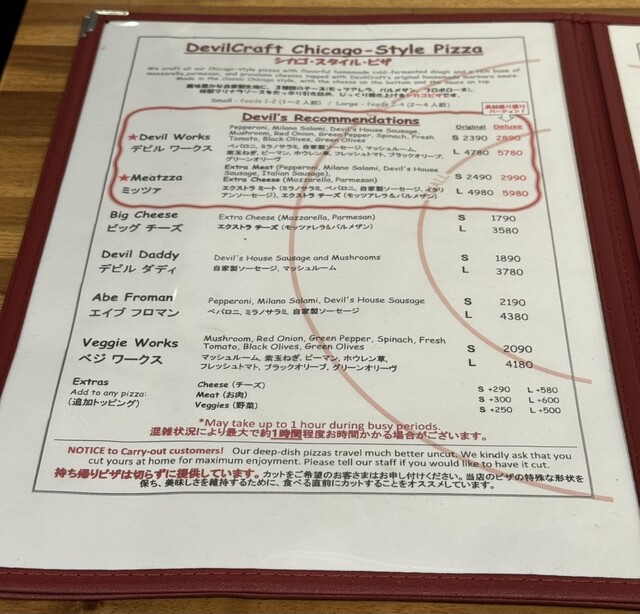 DevilCraft Chicago-Style Pizza
シカゴ・スタイル・ピザ
We craft all our Chicago-style pizzas with flavorful homemade cold-fermented dough and a rich base of
mozzarella, parmesan, and provolone cheeses topped with DevilCraft's original housemade marinara sauce.
Made in the classic Chicago style, with the cheese on the bottom and the sauce on top
Small - Feeds 1-2 (1～2人前) / Large - Feeds 2-4 (2～4人前)
Devil's Recommendations
Original Deluxe
★Devil Works Pepperoni, Milano Salami, Devil's House Sausage, Mushroom, Red Onion, Green Pepper, Spinach, Fresh Tomato, Black Olives, Green Olives S 2390 2890
デビル ワークス ペパロニ、ミラノサラミ、自家製ソーセージ、マッシュルーム、紫玉ねぎ、ピーマン、ホウレン草、フレッシュトマト、ブラックオリーブ、グリーンオリーブ L 4780 5780
★Meatzza Extra Meat (Pepperoni, Milano Salami, Devil's House Sausage, Italian Sausage), Extra Cheese (Mozzarella, Parmesan) S 2490 2990
ミッツァ エクストラ ミート (ミラノサラミ、ペパロニ、自家製ソーセージ、イタリアンソーセージ)、エクストラ チーズ (モッツァレラ&パルメザン) L 4980 5980
Big Cheese Extra Cheese (Mozzarella, Parmesan) S 1790
ビッグ チーズ エクストラ チーズ (モッツァレラ&パルメザン) L 3580
Devil Daddy Devil's House Sausage and Mushrooms S 1890
デビル ダディ 自家製ソーセージ、マッシュルーム L 3780
Abe Froman Pepperoni, Milano Salami, Devil's House Sausage S 2190
エイブ フロマン ペパロニ、ミラノサラミ、自家製ソーセージ L 4380
Veggie Works Mushroom, Red Onion, Green Pepper, Spinach, Fresh Tomato, Black Olives, Green Olives S 2090
ベジ ワークス マッシュルーム、紫玉ねぎ、ピーマン、ホウレン草、フレッシュトマト、ブラックオリーブ、グリーンオリーヴ L 4180
Extras Cheese (チーズ) S +290 L +580
Add to any pizza: Meat (お肉) S +300 L +600
(追加トッピング) Veggies (野菜) S +250 L +500
*May take up to 1 hour during busy periods.
混雑状況により最大で約1時間程度お時間かかる場合がございます。
NOTICE to Carry-out customers! Our deep-dish pizzas travel much better uncut. We kindly ask that you
cut yours at home for maximum enjoyment. Please tell our staff if you would like to have it cut.
持ち帰りピザは切らずに提供しています。カットをご希望のお客さまはお申し付けください。当店のピザの特殊な形状を
保ち、美味しさを維持するために、食べる直前にカットすることをオススメしています。